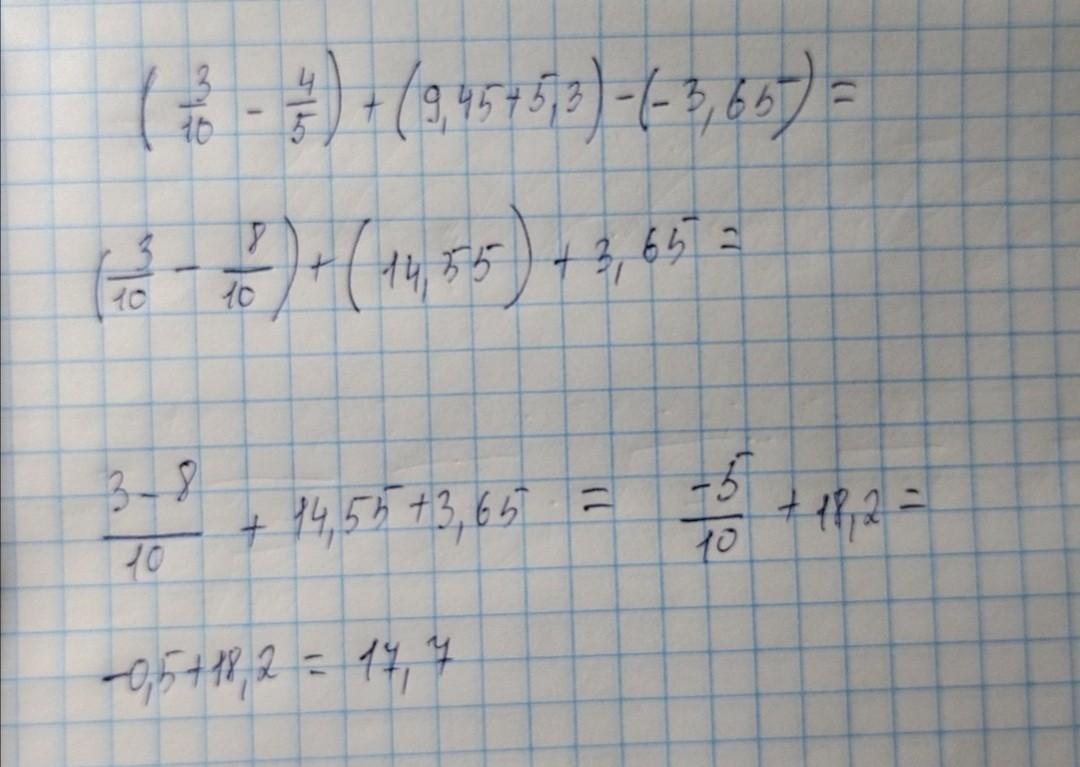 (3/10 - 4/5) + (9,45+5,3) - (-3,65) =
(3/10 - 8/10) + (14,55) + 3,65 =
3-8/10 + 14,55+3,65 = -5/10 + 18,2 =
-0,5+18,2 = 17,7